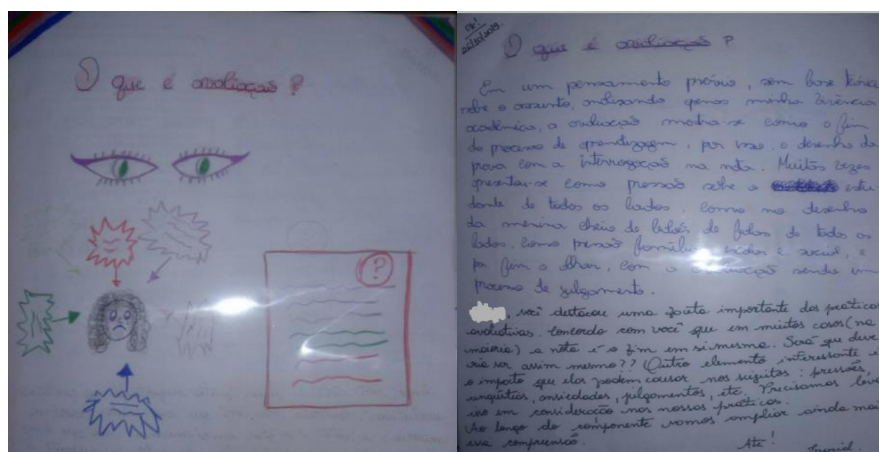 O que é avaliação?
?
Ok!
O que é avaliação?
Em um pensamento prévio, sem base teórica
sobre o assunto, analisando apenas minha vivência
acadêmica, a avaliação mostra-se como o fim
do processo de aprendizagem, por isso, o desenho da
prova com a interrogação na nota. Muitas vezes
apresentar-se como pressão sobre o estu
dante de todos os lados, como no desenho
da menina cheio de balões de falas de todos os
lados, como pressão familiar e social, e
por fim o olhar, com a avaliação sendo um
processo de julgamento.
, você destacou uma faceta importante das práticas
avaliativas. Concordo com você que em muitos casos (na
maioria) a nota é o fim em si mesma. Será que deve
ria ser assim mesmo?? Outro elemento interessante é
o impacto que elas podem causar nos sujeitos: pressões,
angústias, ansiedades, julgamentos, etc. Precisamos levar
isso em consideração nas nossas práticas.
Ao longo do componente vamos ampliar ainda mais
essa compreensão.
Até!